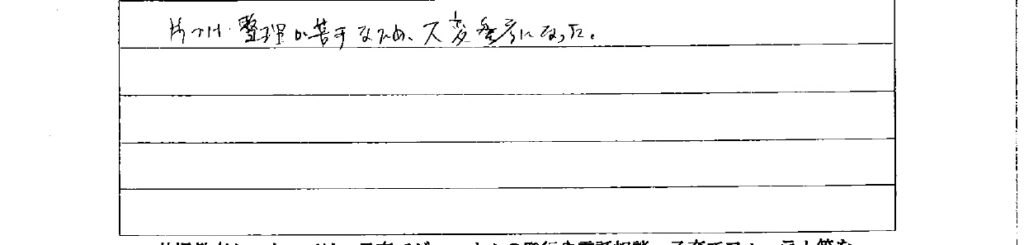 片づけ・整理が苦手なため、大変参考になった。